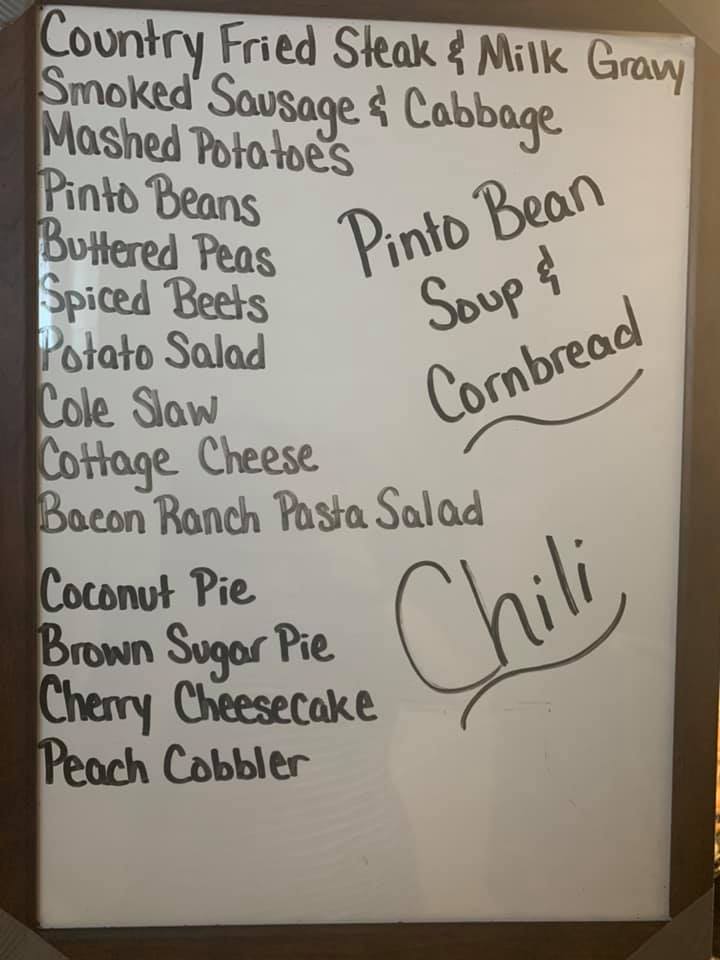 Country Fried Steak & Milk Gravy
Smoked Sausage & Cabbage
Mashed Potatoes
Pinto Beans
Buttered Peas
Spiced Beets
Potato Salad
Cole Slaw
Cottage Cheese
Bacon Ranch Pasta Salad
Coconut Pie
Brown Sugar Pie
Cherry Cheesecake
Peach Cobbler
Pinto Bean
Soup &
Cornbread
Chili